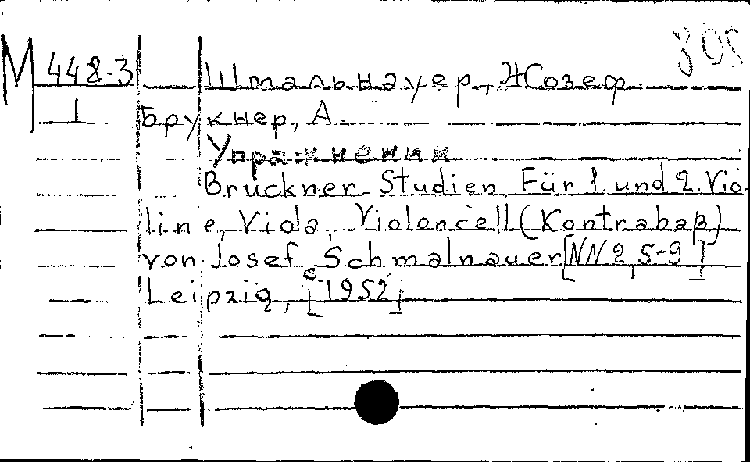 M 448-3 Шмальнауер, Жозеф
1 Брукнер, А.
Упражнения
Bruckner-Studien Für 1. und 2. Vio-
line, Viola, Violoncell (Kontrabaß)
von Josef Schmalnauer [NN 2, 5-9]
Leipzig, [c 1952]